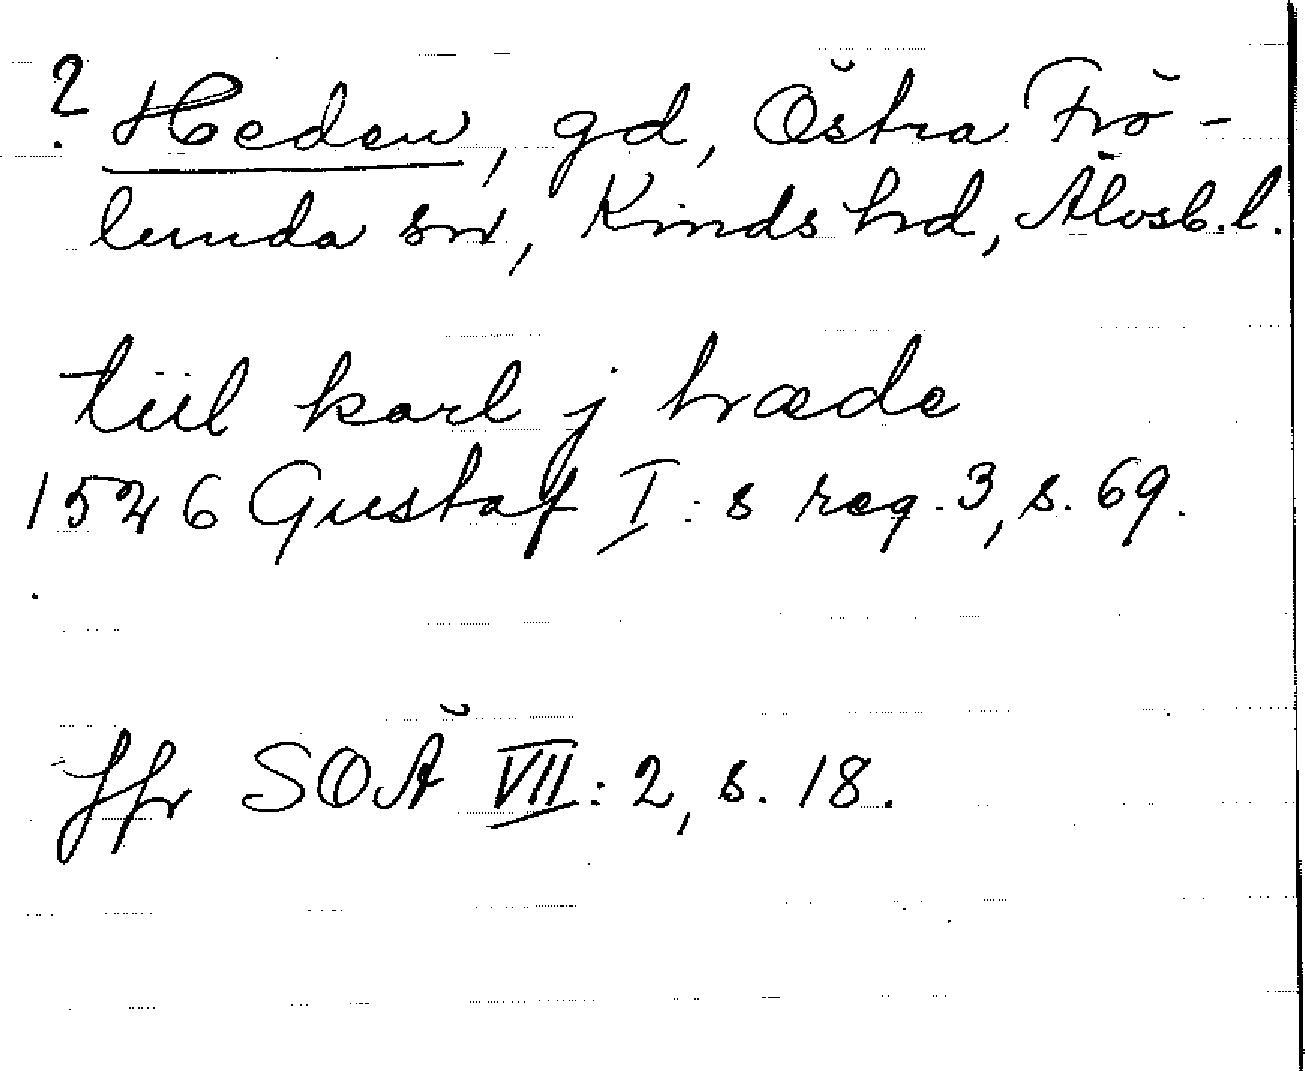 ? Heden, gd, Östra Frö-
lunda sn, Kinds hd, Älvsb. l.
tiil karl j hræde
1526 Gustaf I:s reg. 3, s. 69.
Jfr SOÄ VII:2, s. 18.